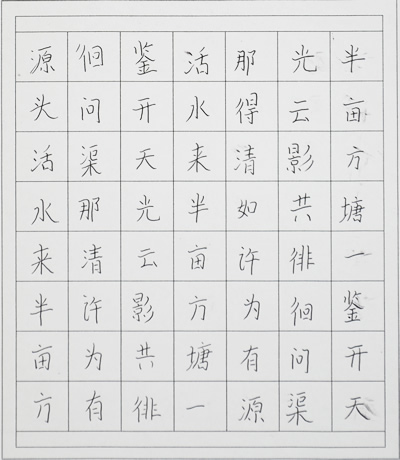 半亩方塘一鉴开天
光云影共徘徊问渠
那得清如许为有源
活水来半亩方塘一
鉴开天光云影共徘
徊问渠那清许为有
源头活水来半亩方